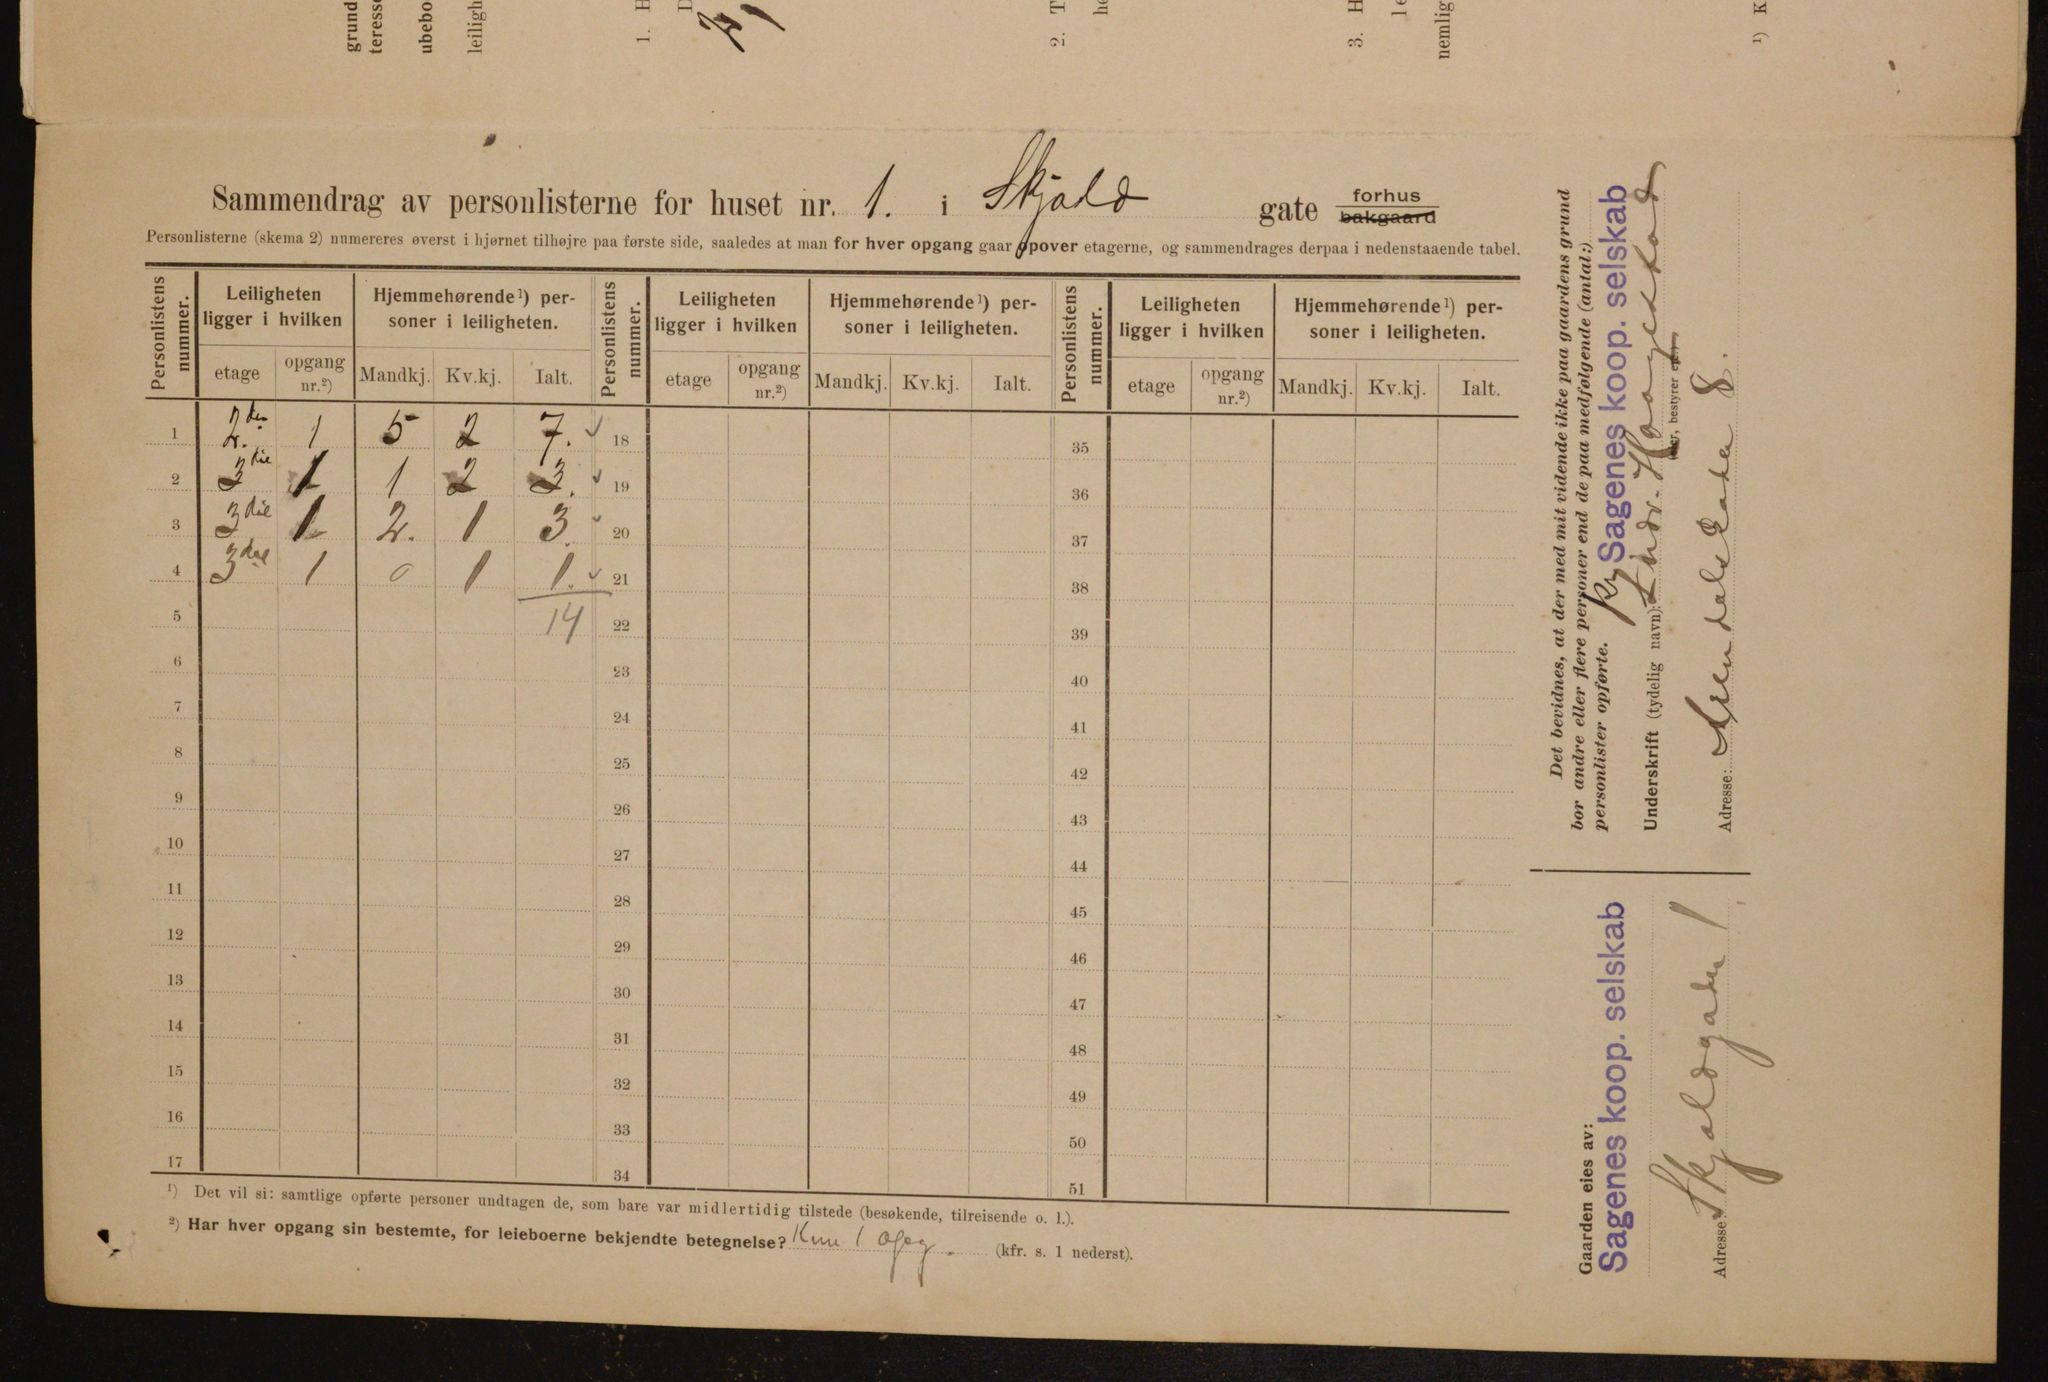 grund
teresse
ubebo
leiligh
1. H
D
21
2. T
he
3. H
le
nemlig
¹) K
Sammendrag av personlisterne for huset nr. 1. i Skjold gate forhus bakgaard
Personlisterne (skema 2) numereres øverst i hjørnet tilhøjre paa første side, saaledes at man for hver opgang gaar opover etagerne, og sammendrages derpaa i nedenstaaende tabel.
Personlistens nummer. Leiligheten ligger i hvilken Hjemmehørende¹) personer i leiligheten. Personlistens nummer. Leiligheten ligger i hvilken Hjemmehørende¹) personer i leiligheten. Personlistens nummer. Leiligheten ligger i hvilken Hjemmehørende¹) personer i leiligheten.
etage opgang nr.²) Mandkj. Kv.kj. Ialt. etage opgang nr.²) Mandkj. Kv.kj. Ialt. etage opgang nr.²) Mandkj. Kv.kj. Ialt.
1 2.den 1 5 2 7. 18 35
2 3die 1 1 2 3. 19 36
3 3die 1 2. 1 3. 20 37
4 3die 1 0 1 1. 21 38
5 14 22 39
6 23 40
7 24 41
8 25 42
9 26 43
10 27 44
11 28 45
12 29 46
13 30 47
14 31 48
15 32 49
16 33 50
17 34 51
¹) Det vil si: samtlige opførte personer undtagen de, som bare var midlertidig tilstede (besøkende, tilreisende o. l.).
²) Har hver opgang sin bestemte, for leieboerne bekjendte betegnelse? Kun 1 opg. (kfr. s. 1 nederst).
Det bevidnes, at der med mit vidende ikke paa gaardens grund
bor andre eller flere personer end de paa medfølgende (antal:)
personlister opførte.
Sagenes koop. selskab
Underskrift (tydelig navn):
(eier, bestyrer
Adresse: Arendalsgaden 8.
Gaarden eies av:
Sagenes koop. selskab
Adresse: Skjoldgaden 1